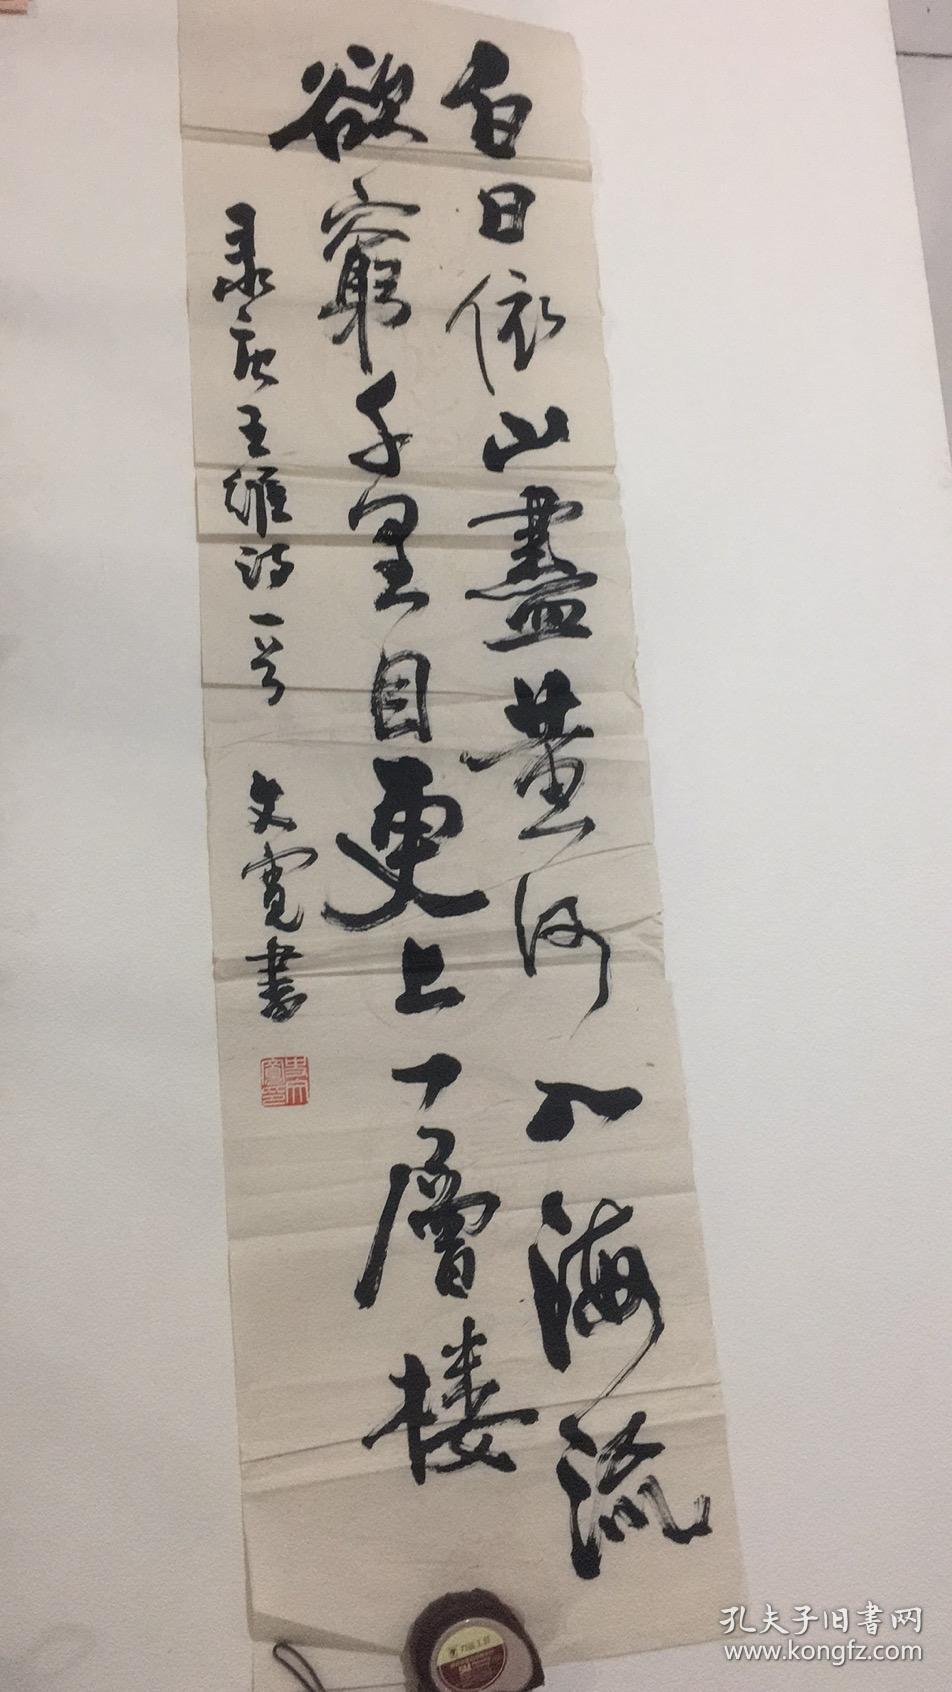 白日依山盡黄河入海流
欲窮千里目更上一層楼
录唐王維诗一首
文寛書
孔夫子旧書网
www.kongfz.com